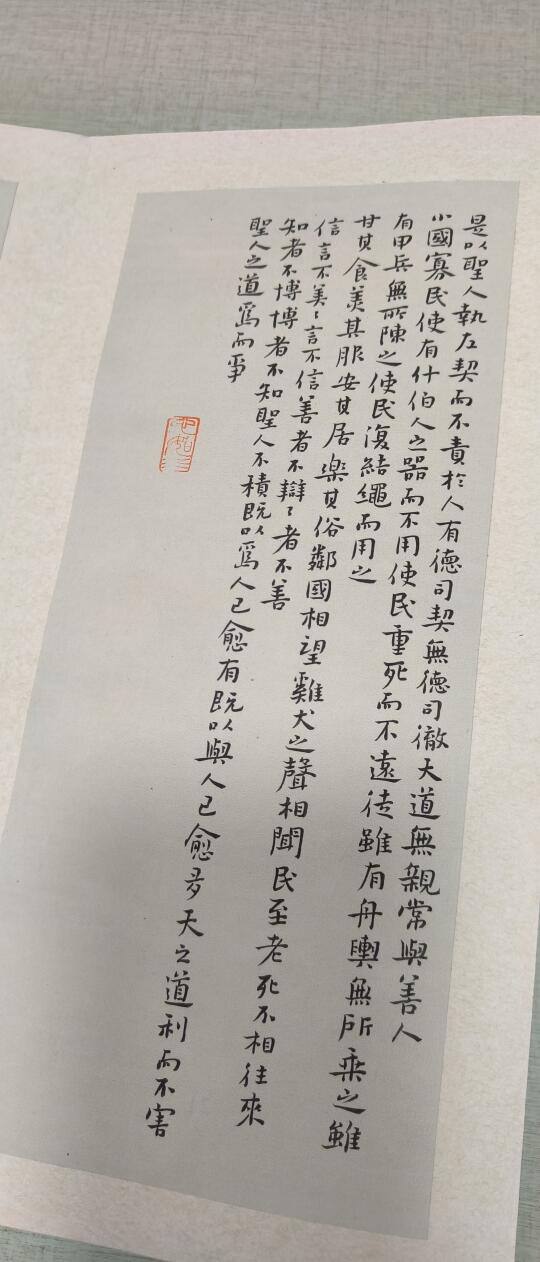 是以聖人執左契而不責於人有德司契無德司徹天道無親常與善人
小國寡民使有什伯人之器而不用使民重死而不遠徙雖有舟輿無所乘之雖
有甲兵無所陳之使民復結繩而用之
甘其食美其服安其居樂其俗鄰國相望雞犬之聲相聞民至老死不相往來
信言不美〻言不信善者不辯〻者不善
知者不博博者不知聖人不積既以爲人已愈有既以與人已愈多天之道利而不害
聖人之道爲而爭